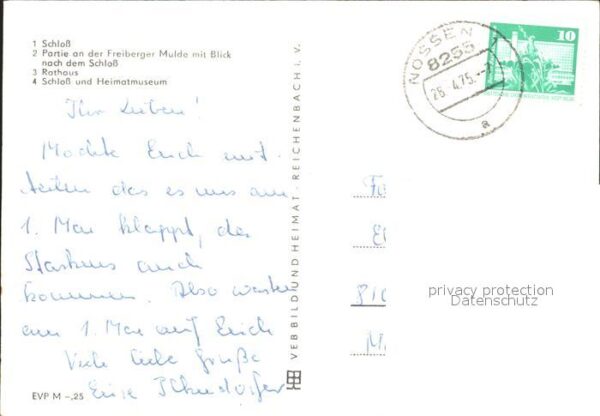 1 Schloß
2 Partie an der Freiberger Mulde mit Blick
nach dem Schloß
3 Rathaus
4 Schloß und Heimatmuseum
Ihr Lieben!
Möchte Euch mit-
teilen das es uns am
1. Mai klappt, das
auch
kommen. Also warten
am 1. Mai auf Euch
Viele liebe Grüße
EVP M –,25
VEB BILD UND HEIMAT · REICHENBACH i. V.
NOSSEN
8255
25. 4.75.-7
a
10
privacy protection
Datenschutz